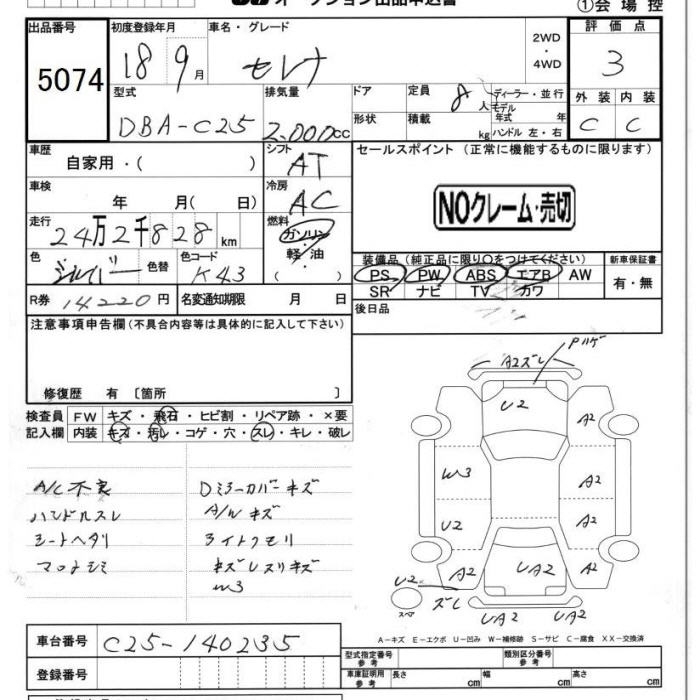 オークション出品申込書
①会場控
出品番号 初度登録年月 車名・グレード 2WD・4WD 評価点
5074 18 9月 セレナ 3
型式 排気量 ドア 定員 8人 ディーラー・並行 外装 内装
モデル年式 年
DBA-C25 2,000cc 形状 積載 kg ハンドル 左・右 C C
車歴 自家用・( ) シフト AT セールスポイント (正常に機能するものに限ります)
車検 年 月( 日) 冷房 AC NOクレーム・売切
走行 24万2千828km 燃料 ガソリン・軽油
色 シルバー 色替 色コード K43
装備品 (純正品に限り○をつけてください) 新車保証書
PS PW ABS エアB AW 有・無
SR ナビ TV カワ
R券 14220円 名変通知期限 月 日 後日品
注意事項申告欄 (不具合内容等は具体的に記入して下さい)
修復歴 有 [箇所 ]
検査員記入欄 FW キズ・飛石・ヒビ割・リペア跡・×要
内装 キズ・汚レ・コゲ・穴・スレ・キレ・破レ
A/C不良 Dミラーカバーキズ
ハンドルスレ A/Wキズ
シートヘタリ ライトクモリ
キズレスリキズ
W3
A2ズレ Pハゲ
U2
A2
W3 A2
U2 A2
A2 UA2 A2
U2 ズレ
スペア UA2 UA2
A-キズ E-エクボ U-凹み W-補修跡 S-サビ C-腐食 XX-交換済
車台番号 C25-140235
登録番号
型式指定番号 参考 類別区分番号 参考
車庫証明用 参考 長さ cm 幅 cm 高さ cm